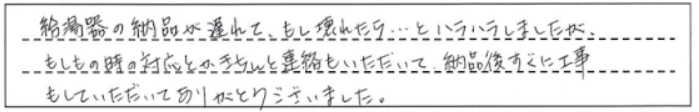 給湯器の納品が遅れて、もし壊れたら…とハラハラしましたが、
もしもの時の対応とかきちんと連絡もいただいて、納品後すぐに工事
もしていただいてありがとうございました。